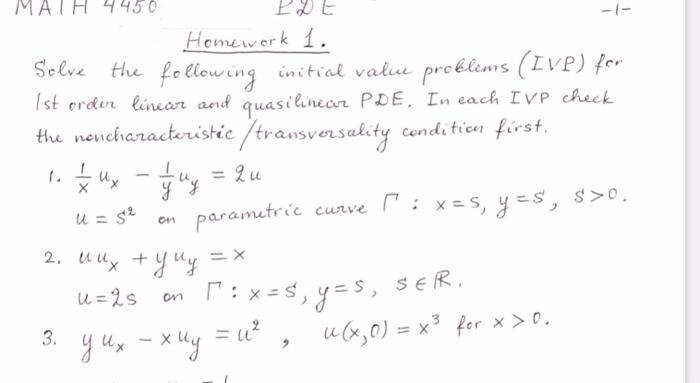 MATH 4450 PDE -1-
Homework 1.
Solve the following initial value problems (IVP) for
1st order linear and quasilinear PDE. In each IVP check
the noncharacteristic/transversality condition first.
1. 1/x u_x - 1/y u_y = 2u
u = s² on parametric curve Γ : x=s, y=s, s>0.
2. uu_x + yu_y = x
u=2s on Γ: x=s, y=s, s∈R.
3. yu_x - xu_y = u², u(x,0) = x³ for x>0.